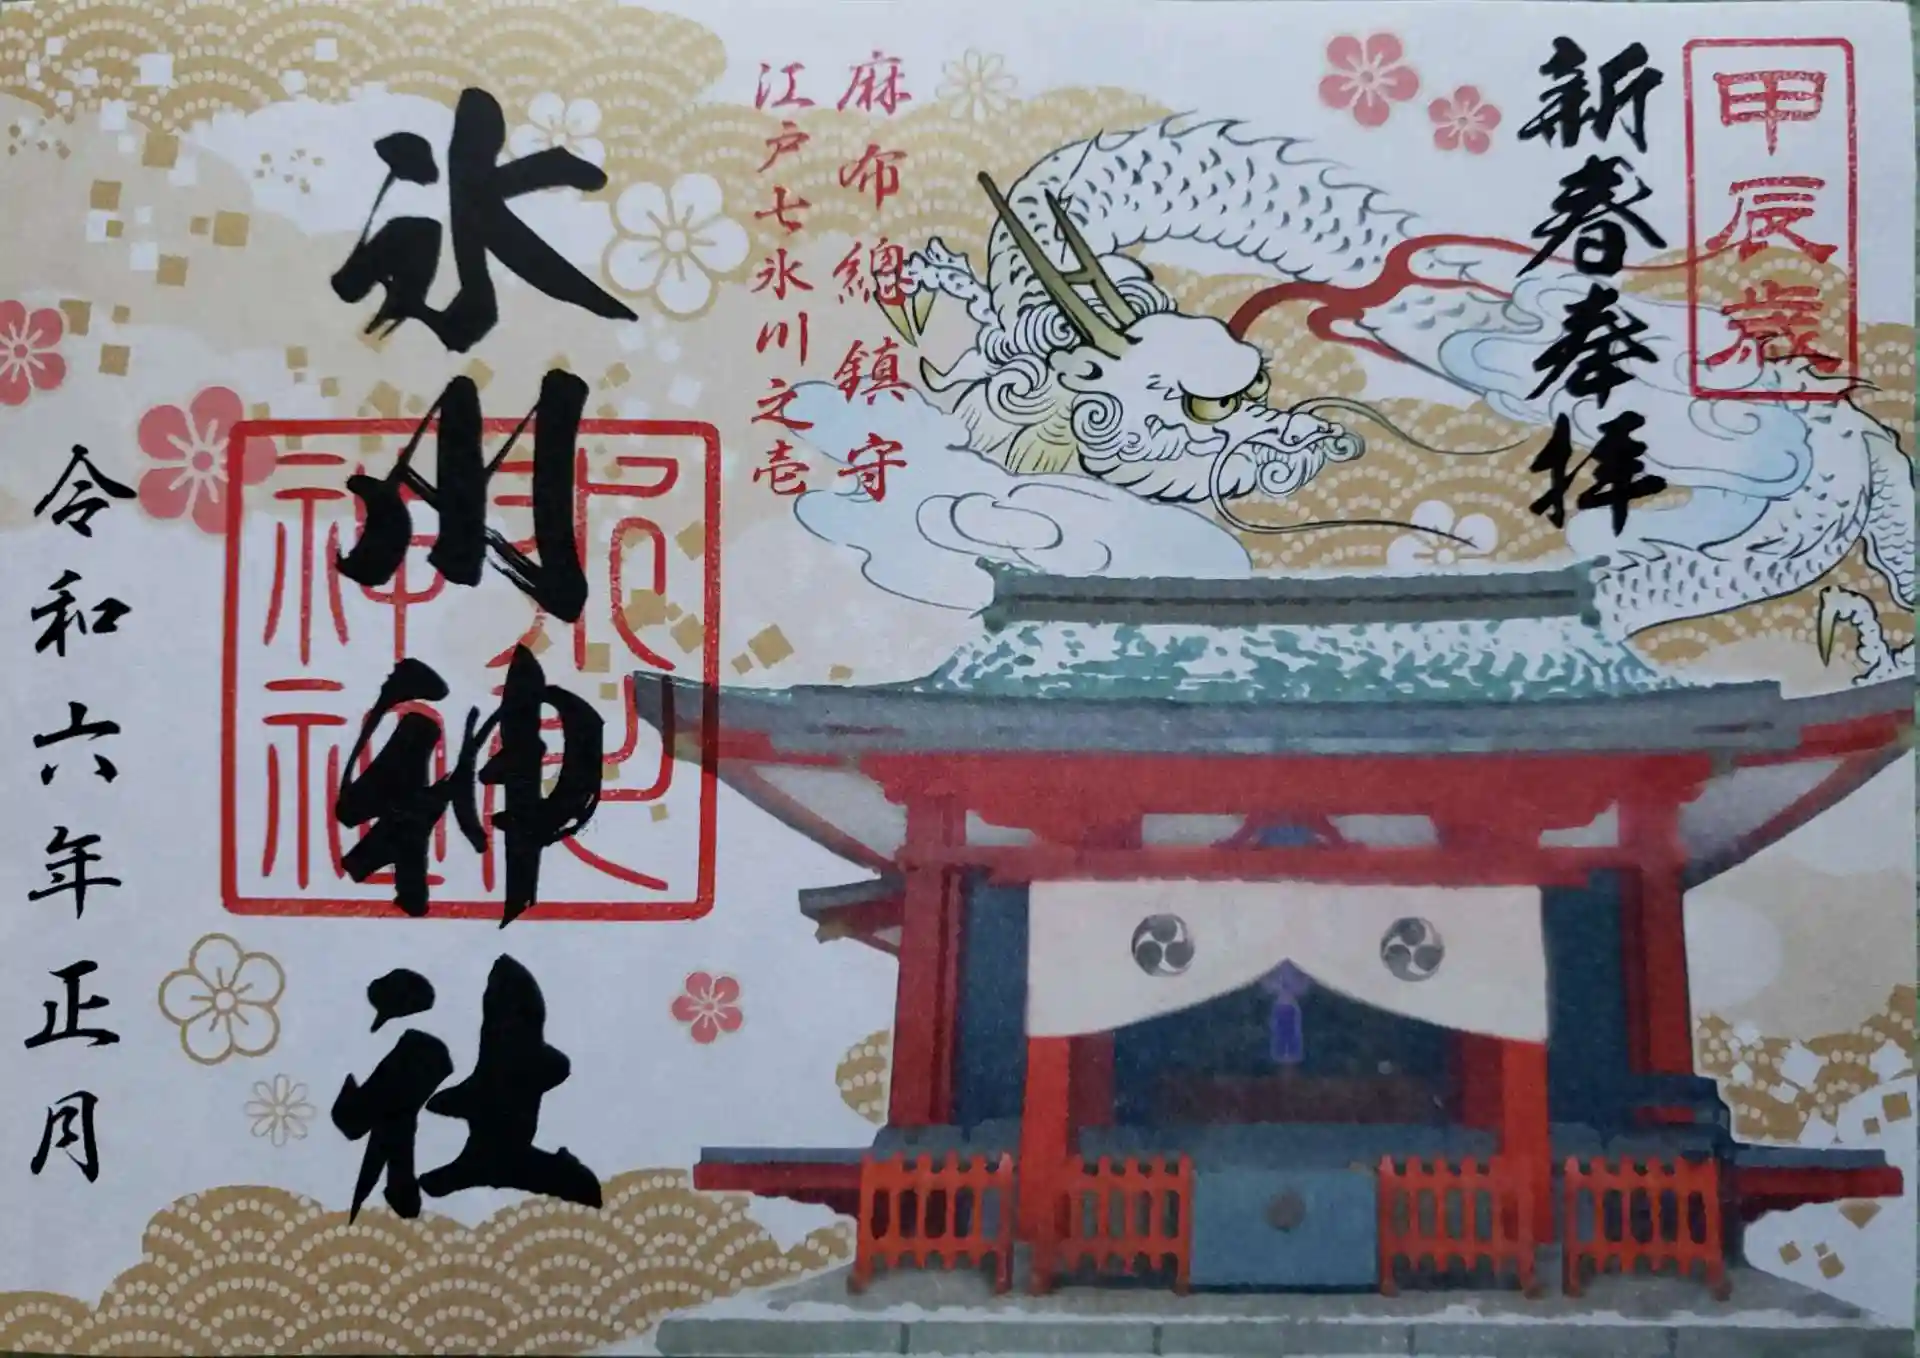 甲辰歳
新春奉拝
麻布總鎮守
江戸七氷川之壱
氷川神社
氷川神社
令和六年正月